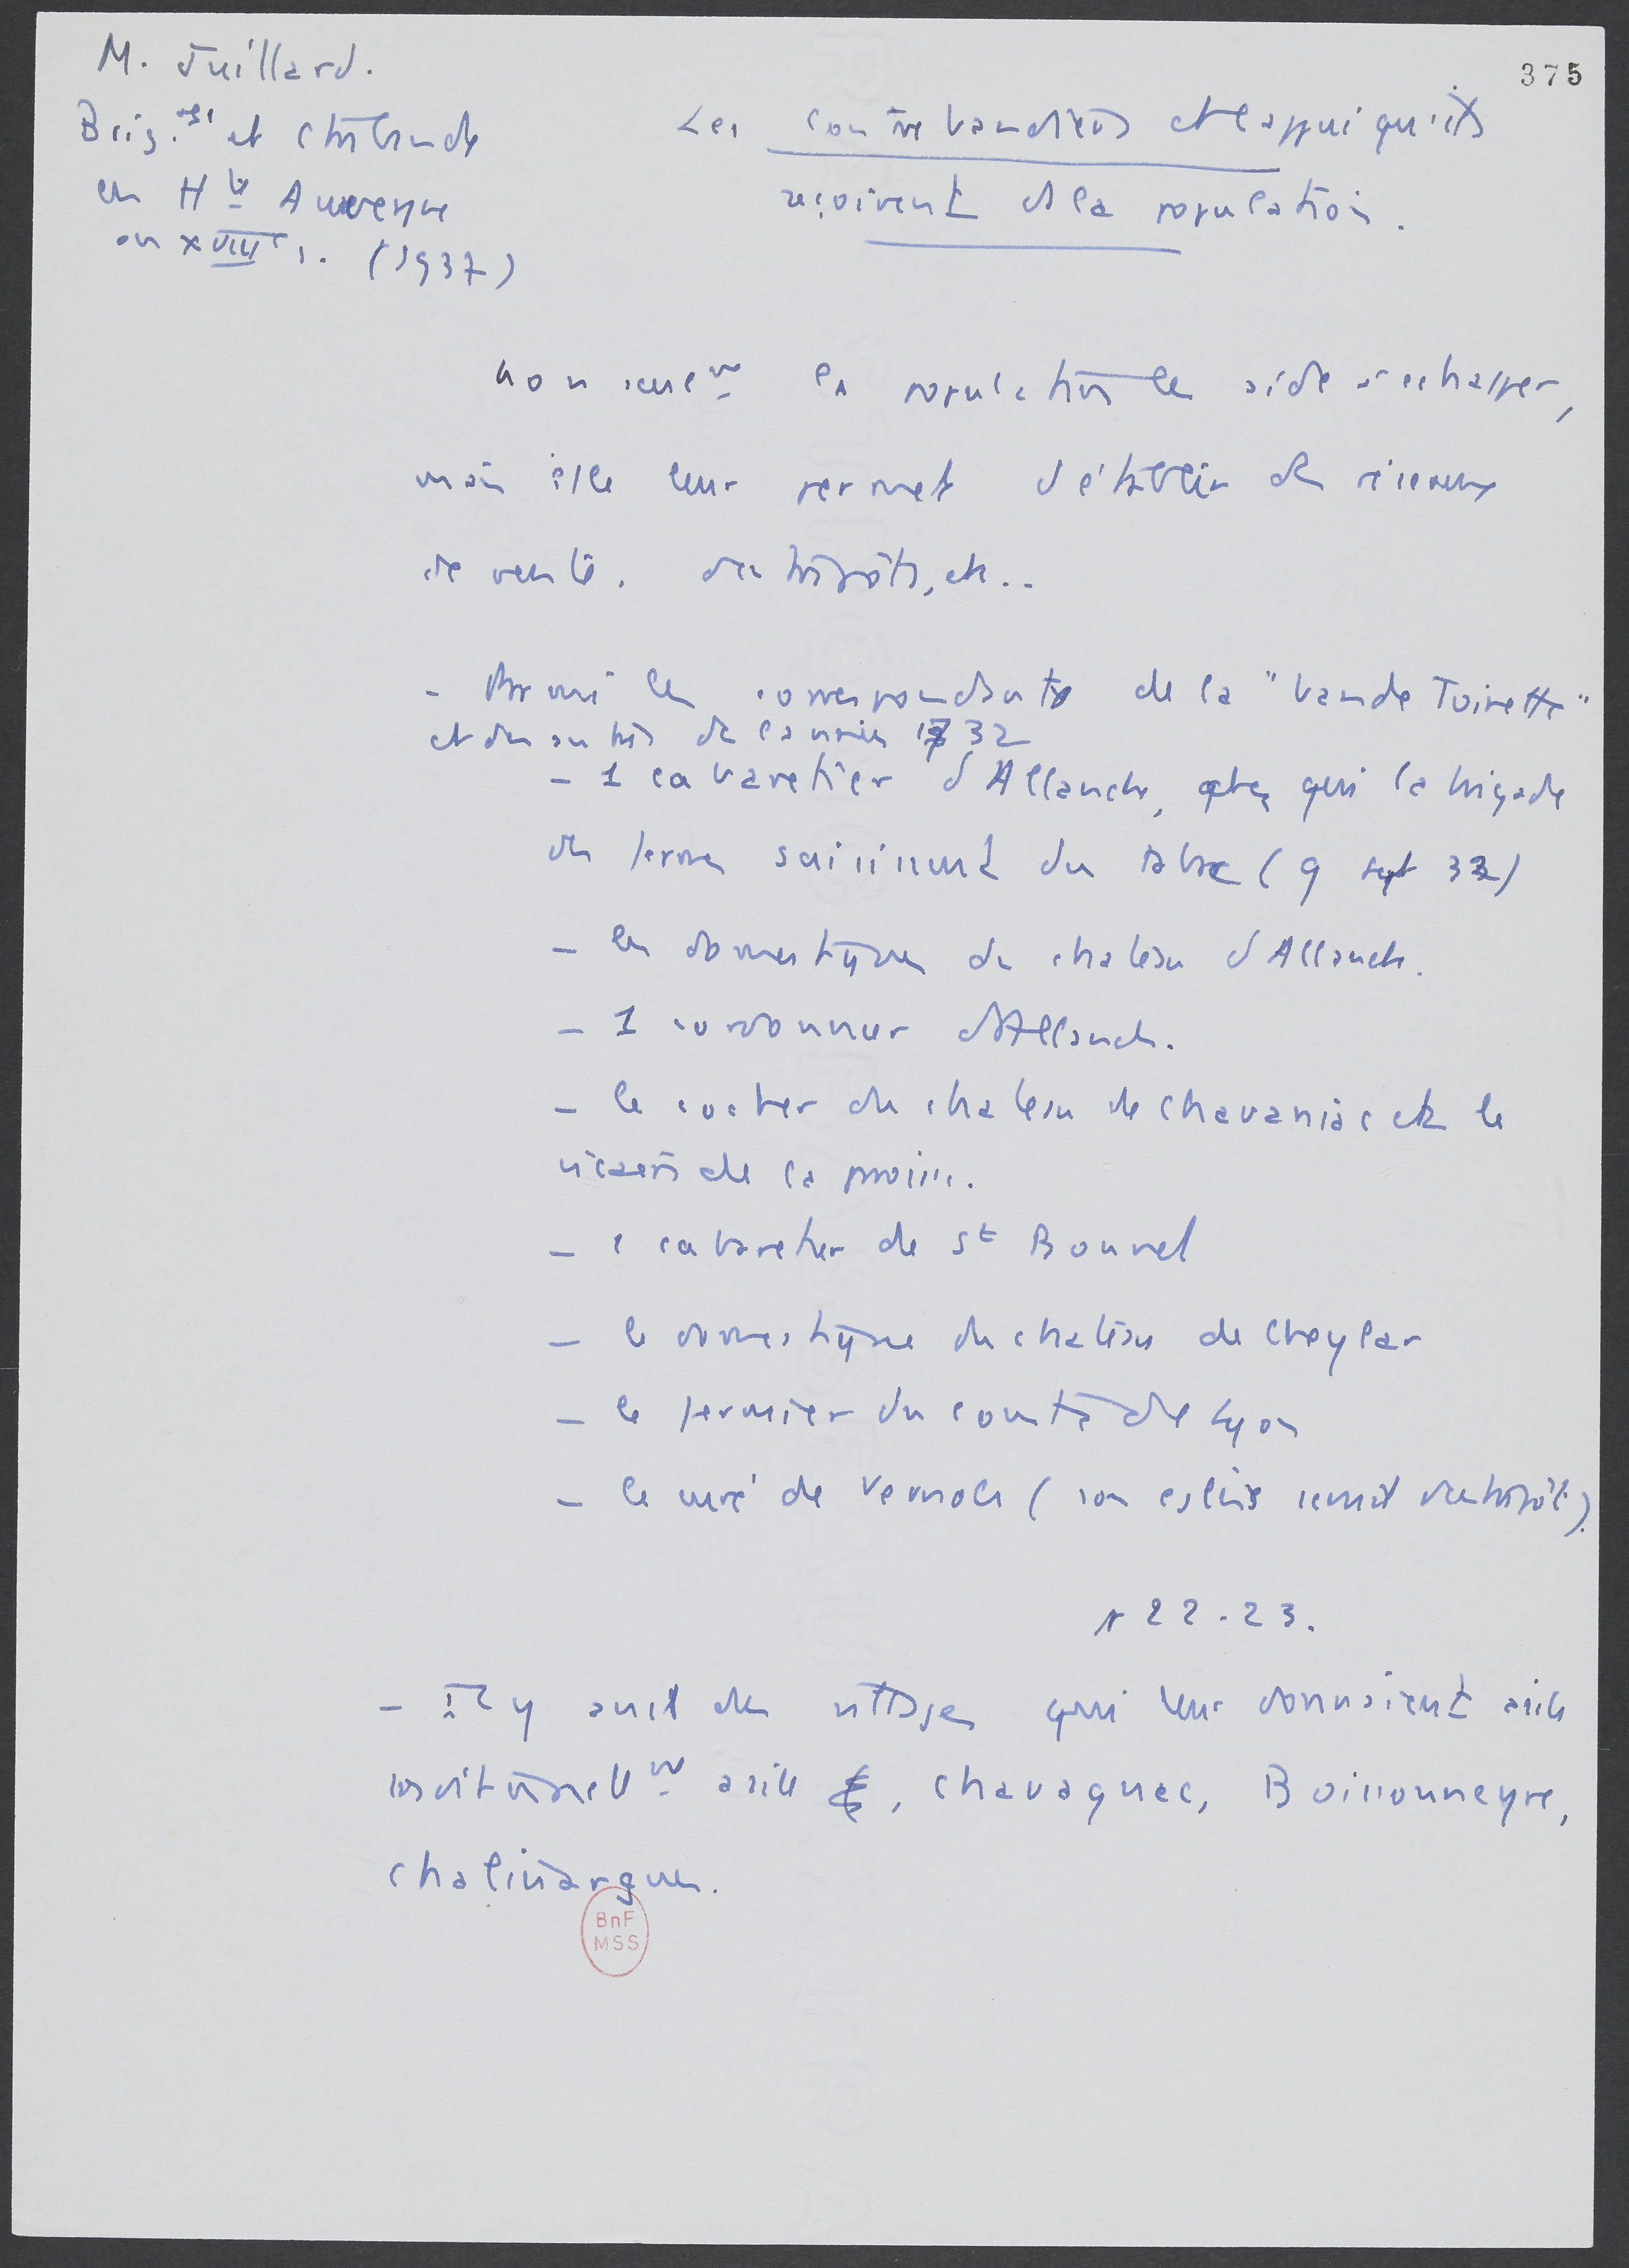 M. Juillard.
375
Brig.ge et ctrbande
en Hte Auvergne
au XVIIIe s. (1937)
Les contrebandiers et l'appui qu'ils
reçoivent de la population.
non seulemt la population les aide à échapper,
mais elle leur permet d'établir des réseaux
de vente, des dépôts, etc..
- Parmi les correspondants de la "bande Toinette"
et des autres de l'année 1732
- 1 cabaretier d'Allanche, chez qui la brigade
des fermes saisissent du tabac (9 sept 32)
- les domestiques du château d'Allanche.
- 1 cordonnier d'Allanche.
- le cocher du château de Chavaniac et le
vicaire de la paroisse.
- 1 cabaretier de St Bonnet
- le domestique du château de Cheylar
- le fermier du comte de Lyon
- le curé de Vernols (son église servait d'entrepôt).
p 22-23.
- Il y avait des villages qui leur donnaient asile
habituellemt asile, Chavagnac, Boissonneyre,
Chalinargues.
BnF
MSS